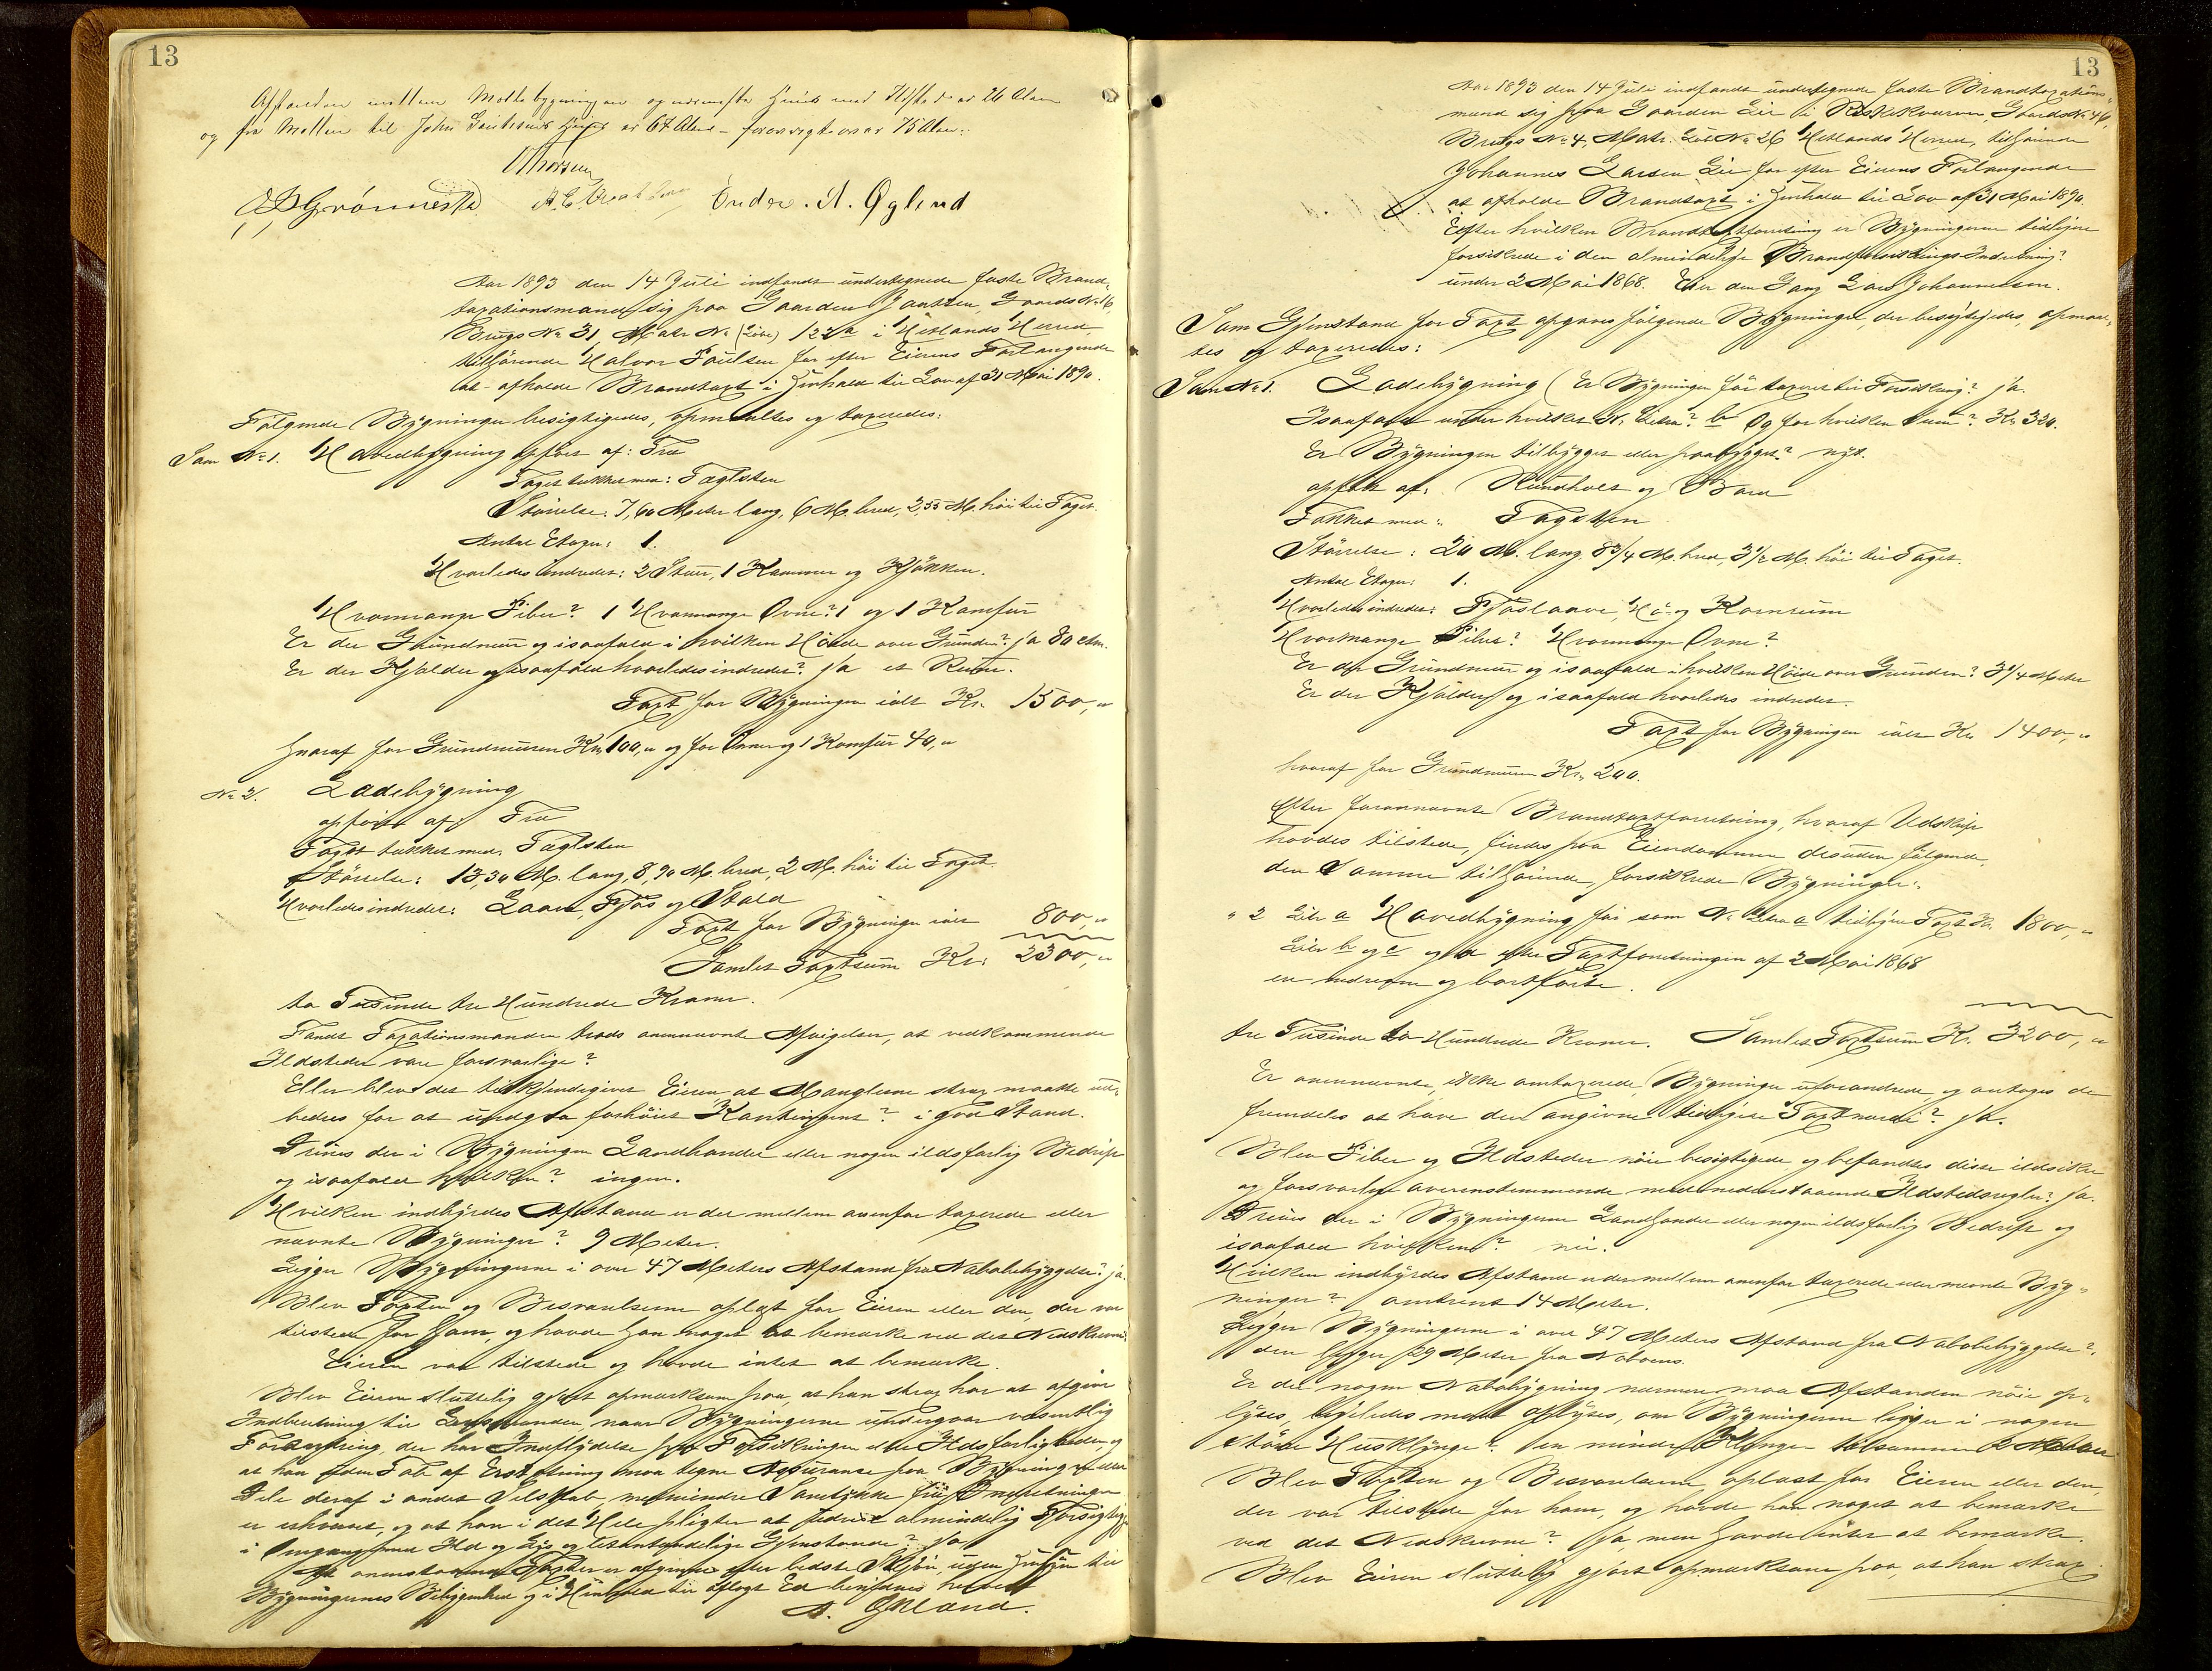 13
Afstanden mellem Møllebygningen og nærmeste Huus med Ildsted er 26 Alen
og fra Møllen til John Huus er 67 Alen — forøvrigt over 75 Alen.
Thorsen
Grönnestad Endre. A. Øglend
Aar 1893 den 14 Juli indfandt undertegnede faste Brand-
taxationsmænd sig paa Gaarden Jaatten, Gaards No 16,
Brugs No 31, Matr No (Litr) 122a i Hetlands Herred
tilhørende Halvor Paulsen for efter Eierens Forlangende
at afholde Brandtaxt i Henhold til Lov af 31 Mai 1890.
Følgende Bygninger besigtigedes, opmaaltes og taxeredes:
Som No 1. Hovedbygning opført af: Træ
Taget tækket med: Taglsten
Størrelse: 7,60 Meter lang, 6 M. bred, 2,55 M. høi til Taget.
Antal Etager: 1.
Hvorledes indredet: 2 Stuer, 1 Kammer og Kjøkken.
Hvormange Piber? 1 Hvormange Ovne? 1 og 1 Komfur
Er der Grundmur og isaafald i hvilken Høide over Grunden? ja 80 ctm.
Er der Kjælder og isaafald hvorledes indredet? ja et Rum.
Taxt for Bygningen ialt Kr. 1500,"
Hvoraf for Grundmuren Kr. 100," og for Ovne og 1 Komfur 40,"
No 2. Ladebygning
opført af: Træ
Taget tækket med: Taglsten
Størrelse: 13,30 M. lang, 8,90 M. bred, 2 M. høi til Taget
Hvorledes indredet: Laave, Fjøs og Stald
Taxt for Bygningen ialt 800,"
Samlet Taxtsum Kr: 2300,"
to Tusinde tre Hundrede Kroner.
Fandt Taxationsmænden trods ovennævnte Afvigelser, at vedkommende
Ildsteder vare forsvarlige?
Eller blev det tilkjendegivet Eieren, at Manglerne strax maatte ud-
bedres for at undgaa forhøiet Kontingent? i god Stand.
Drives der i Bygningen Landhandel eller nogen ildsfarlig Bedrift
og isaafald hvilken? ingen.
Hvilken indbyrdes Afstand er der mellem ovenfor taxerede eller
nævnte Bygninger? 9 Meter.
Ligger Bygningerne i over 47 Meters Afstand fra Nabobebyggelse? ja.
Blev Taxten og Besvarelserne oplæst for Eieren eller den, der var
tilstede for ham, og havde han noget at bemærke ved det Nedskrevne?
Eieren var tilstede og havde intet at bemærke.
Blev Eieren sluttelig gjort opmærksom paa, at han strax har at afgive
Indberetning til Lensmanden, naar Bygningerne undergaar væsentlig
Forandring, der har Indflydelse paa Forsikringen eller Ildsfarligheden, og
at han uden Tab af Erstatning maa tegne Assurance paa Bygningen eller
Dele deraf i andet Selskab, medmindre Samtykke fra Indretningen
er erhvervet, og at han i det Hele pligter at udvise almindelig Forsigtighed
i Omgang med Ild og Lys og letantændelige Gjenstande? Ja
At ovenstaaende Taxter er afgivne efter bedste Skjøn, uden Hensyn til
Bygningernes Beliggenhed og i Henhold til aflagt Ed bevidnes herved
A. Økland.
13
Aar 1893 den 14 Juli indfandt undertegnede faste Brandtaxations-
mænd sig paa Gaarden Lie i Riskekvarven, Gaards No 46,
Brugs No 4, Matr. Løb No 26 Hetlands Herred, tilhørende
Johannes Larsen Lie for efter Eierens Forlangende
at afholde Brandtaxt i Henhold til Lov af 31 Mai 1890.
Efter hvilken Brandtaxtforretning er Bygningerne tidligere
forsikrede i den almindelige Brandforsikrings-Indretning?
under 2 Mai 1868. Eier den Gang Lars Johannesen.
Som Gjenstand for Taxt opgaves følgende Bygninger, der besigtigedes, opmaal-
tes og taxeredes:
Som No 1. Ladebygning (Er Bygningen før taxeret til Forsikring? ja.
Isaafald under hvilket No Litra? b Og for hvilken Sum? Kr. 320.
Er Bygningen tilbygget eller paabygget? nyt.
opført af: Rundholt og Bord
Tækket med: Tagsten
Størrelse: 20 M. lang, 8 3/4 M. bred, 3 1/2 M. høi til Taget.
Antal Etager: 1.
Hvorledes indredet: Fjøs laave, Hø- og Kornrum
Hvormange Piber? Hvormange Ovne?
Er der Grundmur og isaafald i hvilken Høide over Grunden? 3/4 Meter
Er der Kjælder og isaafald hvorledes indredet.
Taxt for Bygningen ialt Kr. 1400,"
hvoraf for Grundmuren Kr. 200.
Efter forannævnte Brandtaxtforretning, hvoraf Udskrift
havdes tilstede, findes paa Eiendommen desuden følgende,
den Samme tilhørende, forsikrede Bygninger:
" 2 Litr a Hovedbygning før som No Litra a tidligere Taxt Kr. 1800,"
Litr b og c og d efter Taxtforretningen af 2 Mai 1868
er nedrevne og bortførte.
tre Tusinde to Hundrede Kroner. Samlet Taxtsum Kr. 3200,"
Er ovennævnte, ikke omtaxerede, Bygninger uforandrede, og antages de
fremdeles at have den angivne tidligere Taxtværdi? ja.
Blev Piber og Ildsteder nøie besigtigede og befandtes disse ildsikre
og forsvarlige overensstemmende med nedenstaaende Ildstedsregler? ja.
Drives der i Bygningerne Landhandel eller nogen ildsfarlig Bedrift og
isaafald hvilken? nei.
Hvilken indbyrdes Afstand er der mellem ovenfor taxerede eller nævnte Byg-
ninger? omtrent 14 Meter.
Ligger Bygningerne i over 47 Meters Afstand fra Nabobebyggelse?
den ligger 29 Meter fra Naboens.
Er der nogen Nabobygning nærmere, maa Afstanden nøie op-
lyses, ligeledes maa oplyses, om Bygningerne ligger i nogen
større Husklynge? en mindre Klynge tilsammen
Blev Taxten og Besvarelserne oplæst for Eieren eller den,
der var tilstede for ham, og havde han noget at bemærke
ved det Nedskrevne? Ja men havde intet at bemærke.
Blev Eieren sluttelig gjort opmærksom paa, at han strax